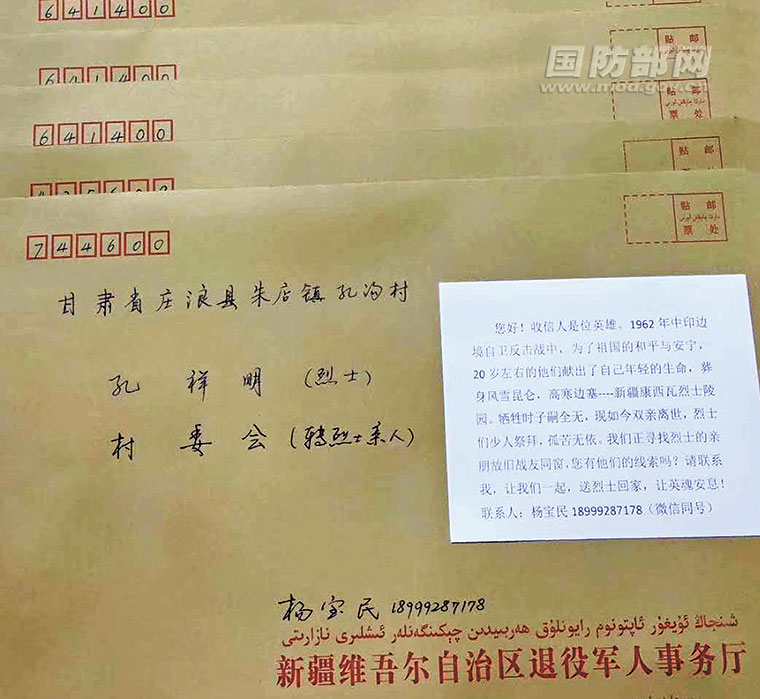 641400
641400
贴 邮
国防部网
www.mod.gov.cn
641400
贴 邮
票 处
贴 邮
744600
贴 邮
票 处
甘肃省庄浪县朱店镇孔沟村
孔 祥 明 (烈士)
村 委 会 (转烈士亲人)
您好！收信人是位英雄。1962年中印边
境自卫反击战中，为了祖国的和平与安宁，
20岁左右的他们献出了自己年轻的生命，葬
身风雪昆仑，高寒边塞----新疆康西瓦烈士陵
园。牺牲时子嗣全无，现如今双亲离世，烈士
们少人祭拜，孤苦无依。我们正寻找烈士的亲
朋故旧战友同窗，您有他们的线索吗？请联系
我，让我们一起，送烈士回家，让英魂安息！
联系人：杨宝民 18999287178（微信同号）
杨宝民 18999287178
شىنجاڭ ئۇيغۇر ئاپتونوم رايونلۇق ھەربىيدىن چېكىنگەنلەر ئىشلىرى نازارىتى
新疆维吾尔自治区退役军人事务厅